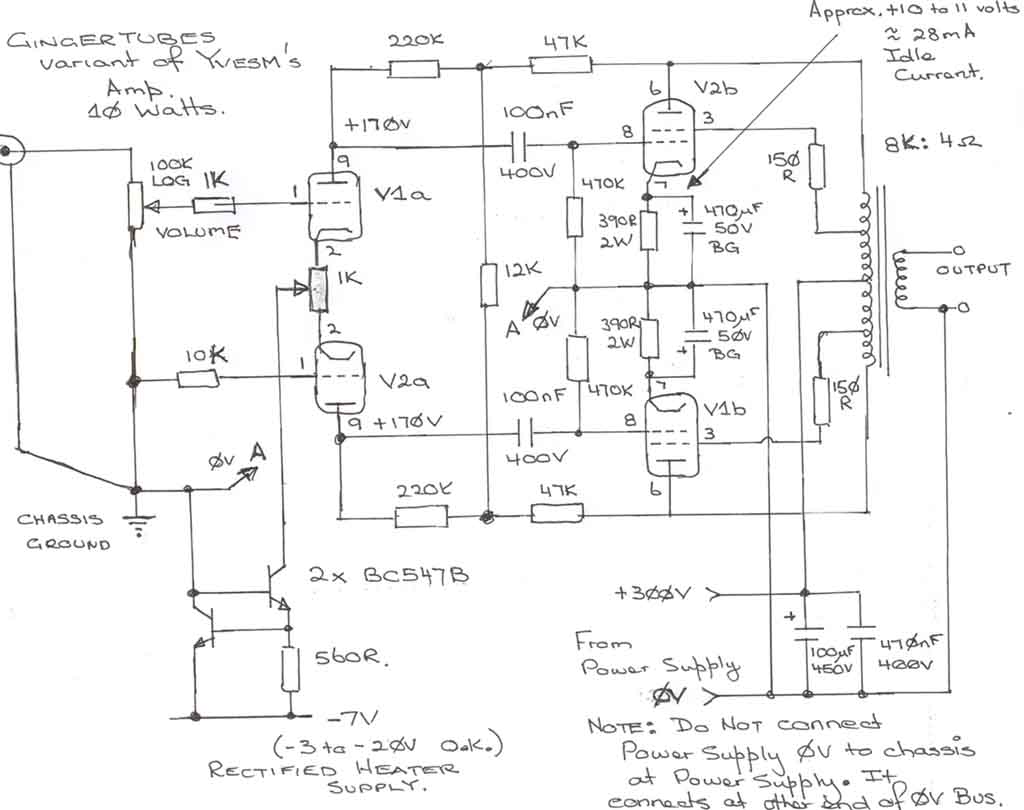 GINGERTUBES
variant of YVESM's
Amp.
10 Watts.
220K
47K
Approx. +10 to 11 volts
≈ 28mA
Idle
Current.
+170V
100nF
400V
6
V2b
3
8
7
150
R
8K: 4Ω
100K
LOG
1K
VOLUME
1
9
V1a
2
1K
470K
390R
2W
+
470µF
50V
BG
12K
A
0V
OUTPUT
390R
2W
470µF
50V
+
BG
2
10K
1
V2a
9
+170V
100nF
400V
470K
7
8
V1b
3
6
150
R
0V
A
220K
47K
CHASSIS
GROUND
2x BC547B
560R.
-7V
(-3 to -20V O.K.)
RECTIFIED HEATER
SUPPLY.
+300V
From
Power Supply
0V
+
100µF
450V
470nF
400V
NOTE: Do NOT connect
Power Supply 0V to chassis
at Power Supply. It
connects at other end of 0V Bus.